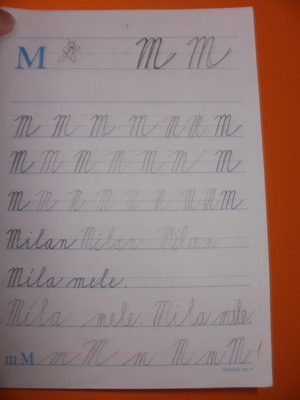 M M M
M M M M M M M
M M M M M M M
M M M M M M M M M
Milan Milan Milan
Míla mele.
Míla mele. Míla mele.
m M m M m M m M